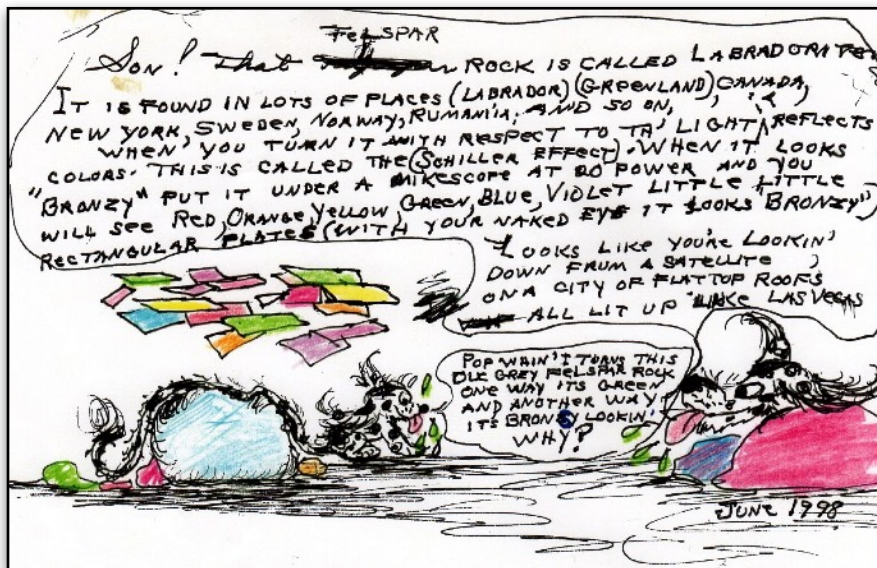 FELSPAR
SON! That ROCK IS CALLED LABRADORATE
IT IS FOUND IN LOTS OF PLACES (LABRADOR) (GREENLAND) CANADA,
NEW YORK, SWEDEN, NORWAY, RUMANIA, AND SO ON,
WHEN YOU TURN IT WITH RESPECT TO TH' LIGHT, REFLECTS
COLORS. THIS IS CALLED THE (SCHILLER EFFECT). WHEN IT LOOKS
"BRONZY" PUT IT UNDER A MIKESCOPE AT 20 POWER AND YOU
WILL SEE RED, ORANGE, YELLOW, GREEN, BLUE, VIOLET LITTLE LITTLE
RECTANGULAR PLATES (WITH YOUR NAKED EYE IT LOOKS BRONZY")
LOOKS LIKE YOU'RE LOOKIN'
DOWN FROM A SATELLITE
ON A CITY OF FLATTOP ROOFS
ALL LIT UP LIKE LAS VEGAS
POP WHIN'I TURNS THIS
OLE GREY FELSPAR ROCK
ONE WAY ITS GREEN
AND ANOTHER WAY
IT'S BRONZY LOOKIN'
WHY?
JUNE 1998